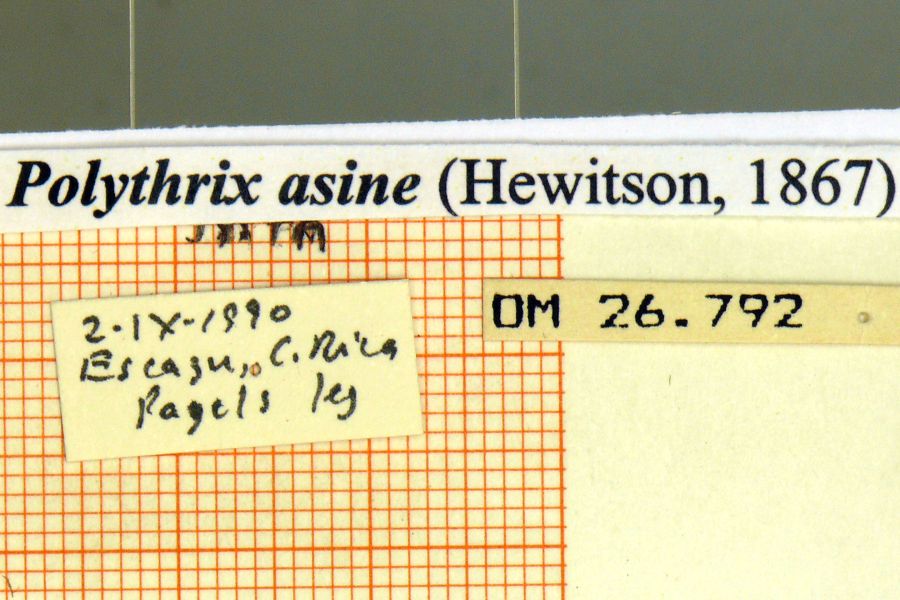 Polythrix asine (Hewitson, 1867)
OM 26.792
2-IX-1990
Escazu, C. Rica
Pagels leg